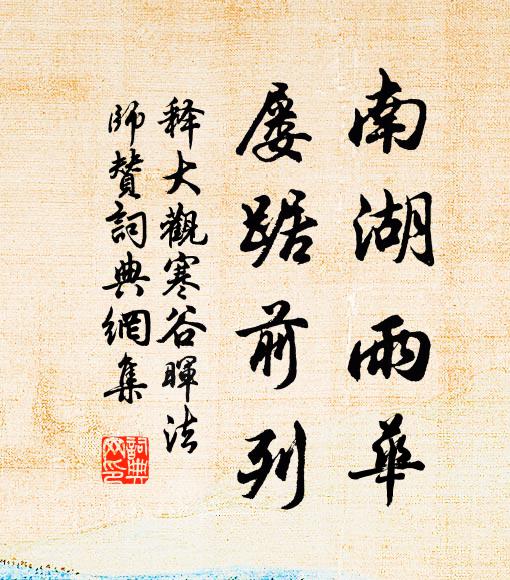 南湖雨華
屡踞前列
释大觀寒谷暉法
師贊詞典網集
詞典